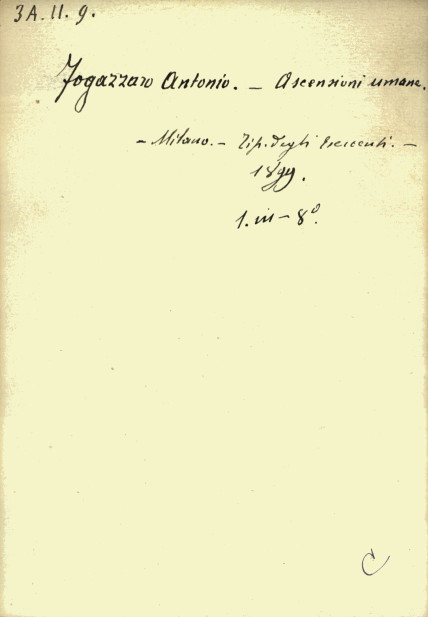 3A. II. 9.
Fogazzaro Antonio. — Ascensioni umane.
— Milano. — Tip. degli Esercenti. —
1899.
1. in — 8°.
C